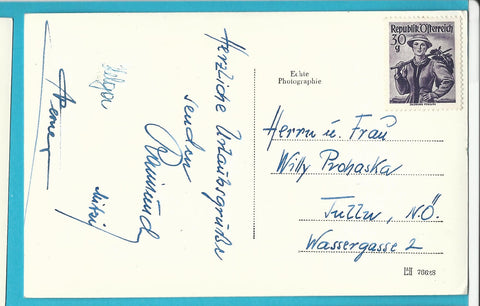 Herzliche Urlaubsgrüße
senden
Raimund
Helga
Werner
Echte
Photographie
Republik Österreich
30
g
Herrn u. Frau
Willy Prohaska
Tulln, N.Ö.
Wassergasse 2